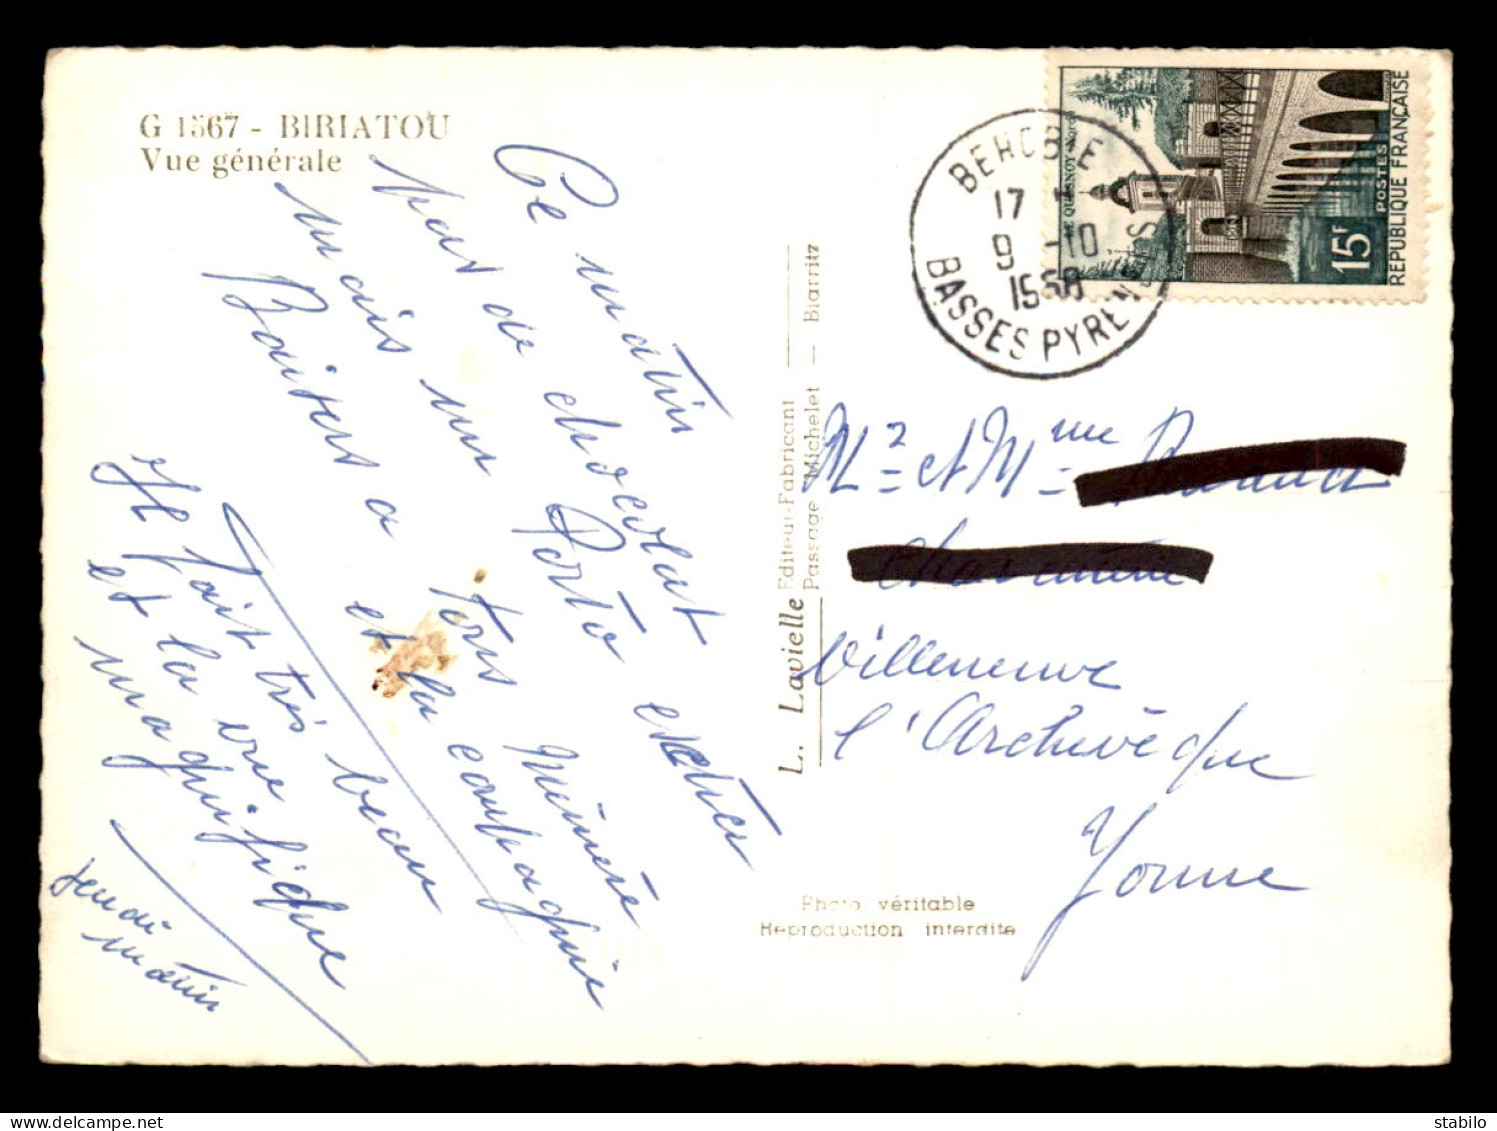 G 1567 - BIRIATOU
Vue générale
Ce matin
pas de chocolat
mais un Porto extra
Baisers a tous Mémère
et la compagnie
Il fait très beau
et la vue
magnifique
Jeudi
matin
L. Lavielle Editeur-Fabricant
Passage Michelet — Biarritz
BEHOBIE
17 H
9 -10
1958
BASSES PYRENEES
LE QUESNOY-NORD
15F
POSTES
REPUBLIQUE FRANÇAISE
Mr et Mme
Villeneuve
l'Archevêque
Yonne
Photo véritable
Reproduction interdite